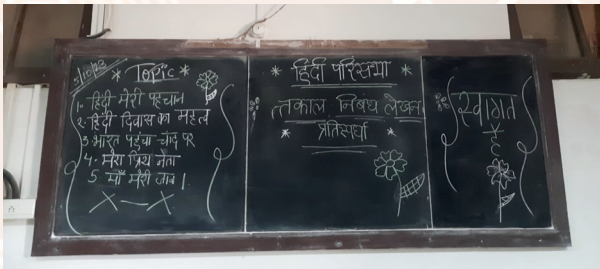 5/10/23
* Topic *
1- हिंदी मेरी पहचान
2- हिंदी दिवस का महत्व
3- भारत पहुंचा चाँद पर
4- मेरा प्रिय नेता
5. माँ मेरी जान।
X — X
* हिंदी परिसभा *
तत्काल निबंध लेखन
* प्रतिस्पर्धा *
स्वागत
है